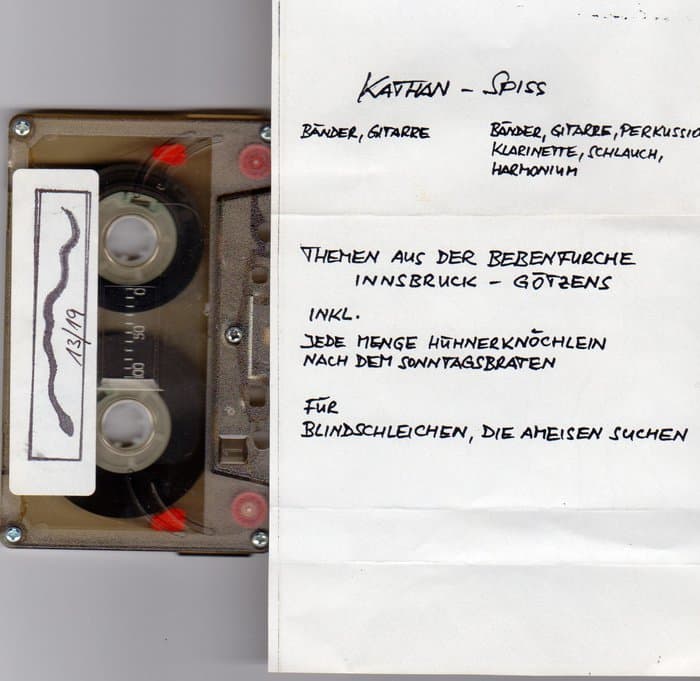 KATHAN – SPISS
BÄNDER, GITARRE
BÄNDER, GITARRE, PERKUSSIO
KLARINETTE, SCHLAUCH,
HARMONIUM
THEMEN AUS DER BEBENFURCHE
INNSBRUCK – GÖTZENS
INKL.
JEDE MENGE HÜHNERKNÖCHLEIN
NACH DEM SONNTAGSBRATEN
FÜR
BLINDSCHLEICHEN, DIE AMEISEN SUCHEN
13/19
0
50
100